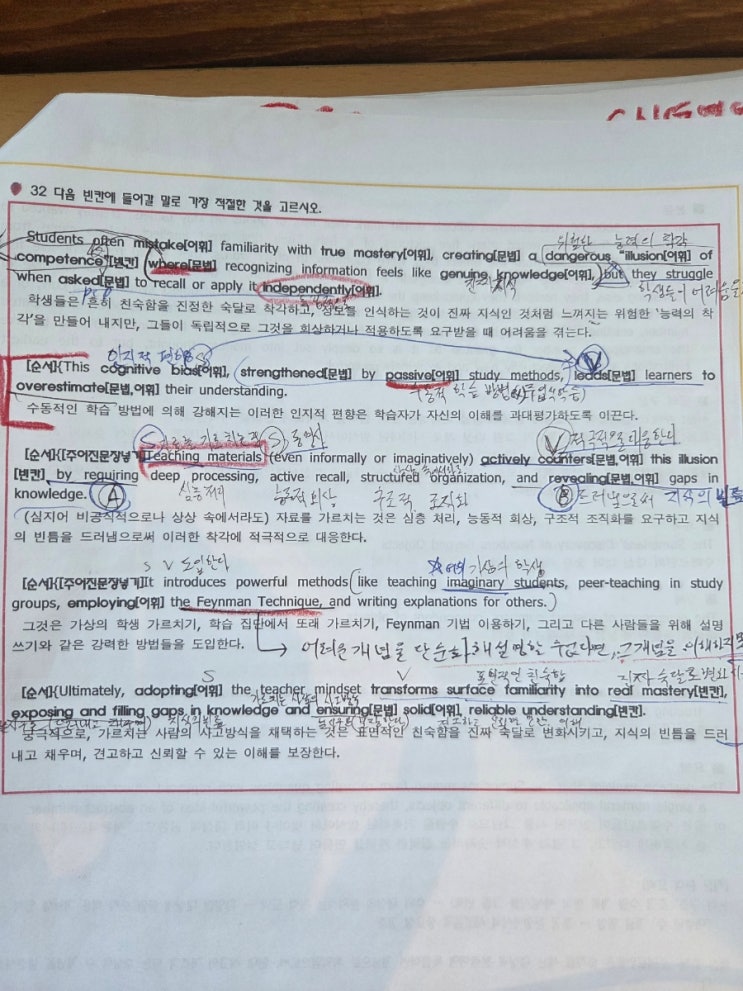 32 다음 빈칸에 들어갈 말로 가장 적절한 것을 고르시오.
위험한 능력의 착각
Students often mistake[어휘] familiarity with true mastery[어휘], creating[문법] a dangerous "illusion[어휘] of
competence"[빈칸] where[문법] recognizing information feels like genuine knowledge[어휘], but they struggle
when asked[문법] to recall or apply it independently[어휘].
진짜 지식
학생들이 어려움을
학생들은 흔히 친숙함을 진정한 숙달로 착각하고, 정보를 인식하는 것이 진짜 지식인 것처럼 느껴지는 위험한 '능력의 착
각'을 만들어 내지만, 그들이 독립적으로 그것을 회상하거나 적용하도록 요구받을 때 어려움을 겪는다.
인지적 편향 S V
[순서]{This cognitive bias[어휘], strengthened[문법] by passive[어휘] study methods, leads[문법] learners to
overestimate[문법,어휘] their understanding.
수동적 학습 방법
수동적인 학습 방법에 의해 강해지는 이러한 인지적 편향은 학습자가 자신의 이해를 과대평가하도록 이끈다.
S 자료를 가르치는 것 S 동명사 V 적극적으로 대응한다
[순서]{[주어진문장넣기]Teaching materials (even informally or imaginatively) actively counters[문법,어휘] this illusion
[빈칸] by requiring deep processing, active recall, structured organization, and revealing[문법] gaps in
knowledge.
A 심층 처리 능동적 회상 구조적 조직화 B 드러냄으로써 지식의 빈틈
(심지어 비공식적으로나 상상 속에서라도) 자료를 가르치는 것은 심층 처리, 능동적 회상, 구조적 조직화를 요구하고 지식
의 빈틈을 드러냄으로써 이러한 착각에 적극적으로 대응한다.
S V 도입한다 가상의 학생
[순서]{[주어진문장넣기]It introduces powerful methods (like teaching imaginary students, peer-teaching in study
groups, employing[어휘] the Feynman Technique, and writing explanations for others.)
그것은 가상의 학생 가르치기, 학습 집단에서 또래 가르치기, Feynman 기법 이용하기, 그리고 다른 사람들을 위해 설명
쓰기와 같은 강력한 방법들을 도입한다.
→ 어려운 개념을 단순화해 설명할 수 있다면, 그 개념을 이해하
S V 표면적인 친숙함 진짜 숙달로 변화
[순서]{Ultimately, adopting[어휘] the teacher mindset transforms surface familiarity into real mastery[빈칸],
exposing and filling gaps in knowledge and ensuring[문법] solid[어휘], reliable understanding[빈칸].
궁극적으로, 가르치는 사람의 사고방식을 채택하는 것은 표면적인 친숙함을 진짜 숙달로 변화시키고, 지식의 빈틈을 드러
내고 채우며, 견고하고 신뢰할 수 있는 이해를 보장한다.